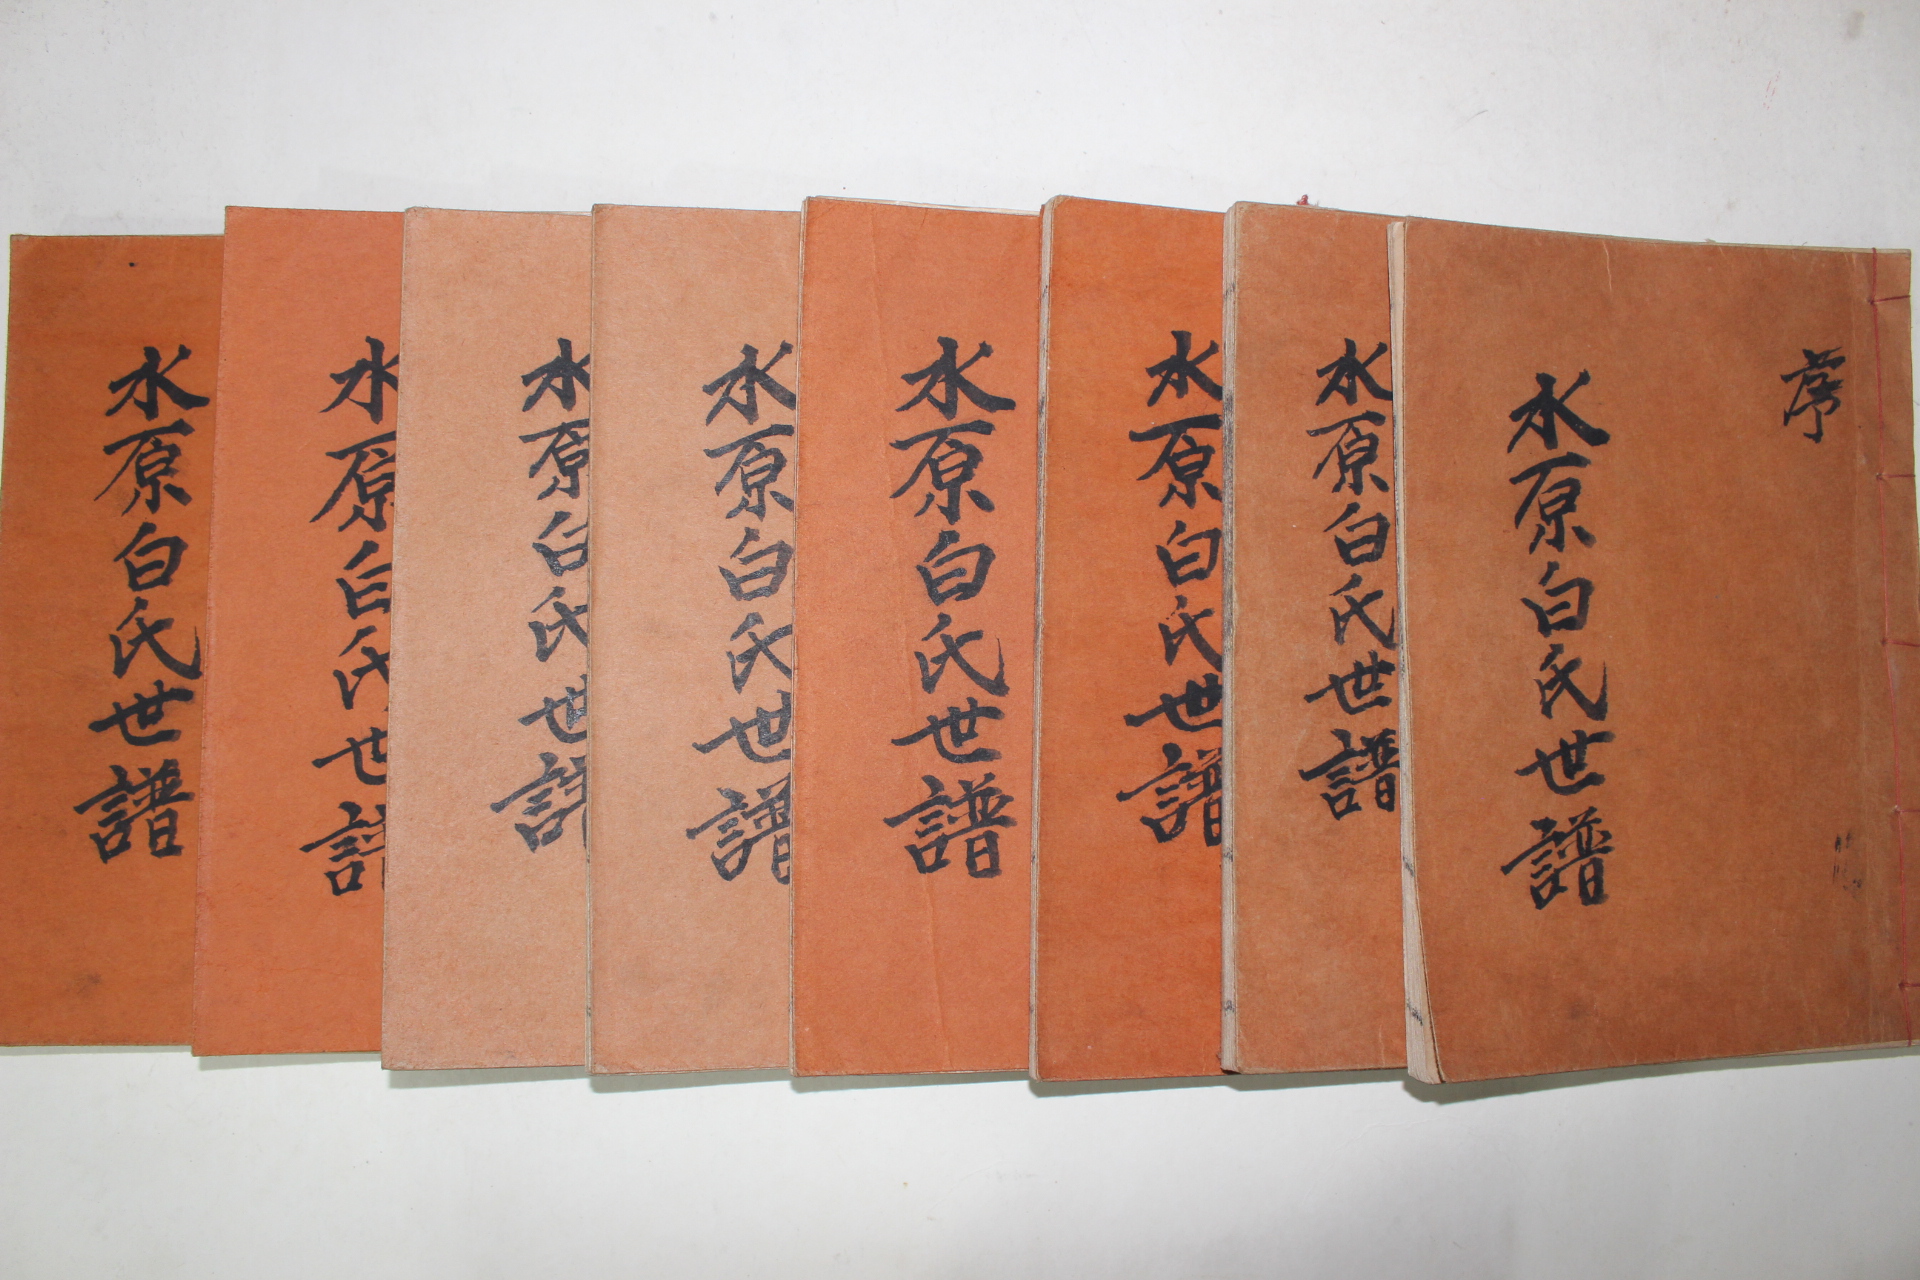 序
水原白氏世譜
水原白氏世譜
水原白氏世譜
水原白氏世譜
水原白氏世譜
水原白氏世譜
水原白氏世譜
水原白氏世譜